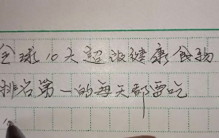 全球10大超级健康食物
排名第一的每天都要吃